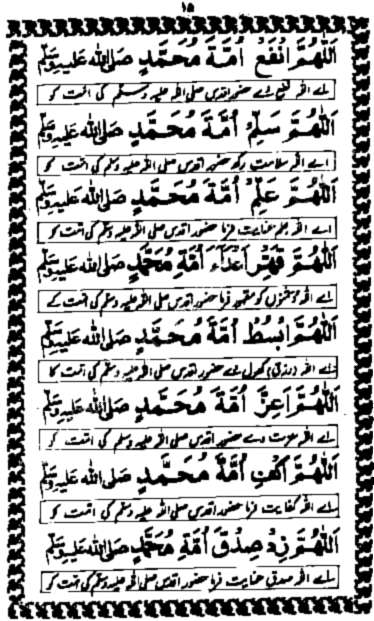 ١٥
اَللّٰهُمَّ انْفَعْ اُمَّةَ مُحَمَّدٍ صَلَّى اللّٰهُ عَلَيْهِ وَسَلَّمَ
اے اللہ نفع دے حضور اقدس صلی اللہ علیہ وسلم کی امت کو
اَللّٰهُمَّ سَلِّمْ اُمَّةَ مُحَمَّدٍ صَلَّى اللّٰهُ عَلَيْهِ وَسَلَّمَ
اے اللہ سلامت رکھ حضور اقدس صلی اللہ علیہ وسلم کی امت کو
اَللّٰهُمَّ عَلِّمْ اُمَّةَ مُحَمَّدٍ صَلَّى اللّٰهُ عَلَيْهِ وَسَلَّمَ
اے اللہ علم عنایت فرما حضور اقدس صلی اللہ علیہ وسلم کی امت کو
اَللّٰهُمَّ قَهِّرْ اَعْدَاءَ اُمَّةِ مُحَمَّدٍ صَلَّى اللّٰهُ عَلَيْهِ وَسَلَّمَ
اے اللہ دشمنوں کو مقہور فرما حضور اقدس صلی اللہ علیہ وسلم کی امت کے
اَللّٰهُمَّ ابْسُطْ اُمَّةَ مُحَمَّدٍ صَلَّى اللّٰهُ عَلَيْهِ وَسَلَّمَ
اے اللہ (رزق) کھول دے حضور اقدس صلی اللہ علیہ وسلم کی امت کا
اَللّٰهُمَّ اَعِزَّ اُمَّةَ مُحَمَّدٍ صَلَّى اللّٰهُ عَلَيْهِ وَسَلَّمَ
اے اللہ عزت دے حضور اقدس صلی اللہ علیہ وسلم کی امت کو
اَللّٰهُمَّ اكْفِ اُمَّةَ مُحَمَّدٍ صَلَّى اللّٰهُ عَلَيْهِ وَسَلَّمَ
اے اللہ کفایت فرما حضور اقدس صلی اللہ علیہ وسلم کی امت کو
اَللّٰهُمَّ زِدْ صِدْقَ اُمَّةِ مُحَمَّدٍ صَلَّى اللّٰهُ عَلَيْهِ وَسَلَّمَ
اے اللہ صدق عنایت فرما حضور اقدس صلی اللہ علیہ وسلم کی امت کو